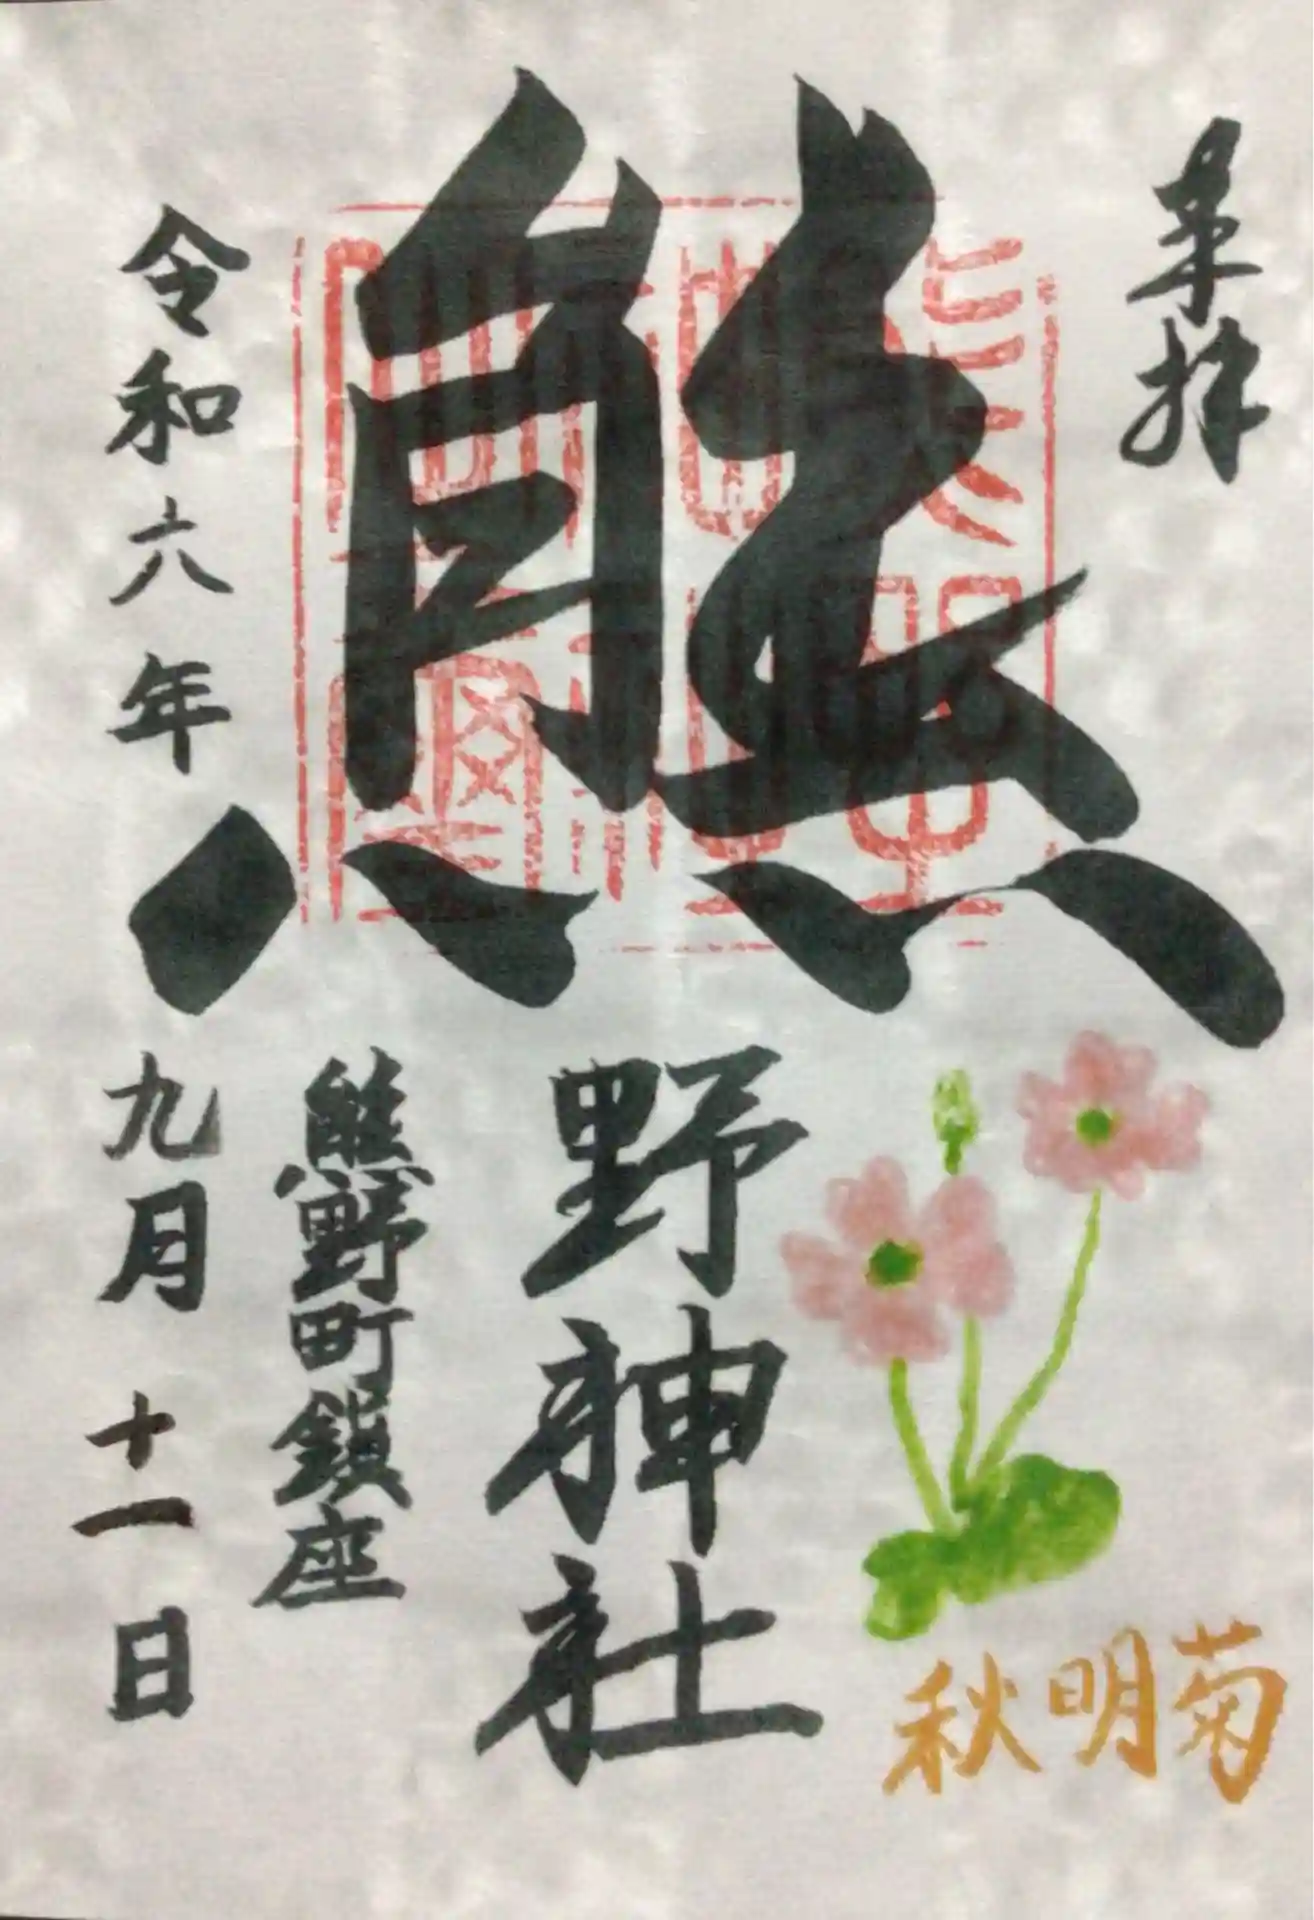 奉拝
熊野神社
熊野町鎮座
令和六年九月十一日
秋明菊